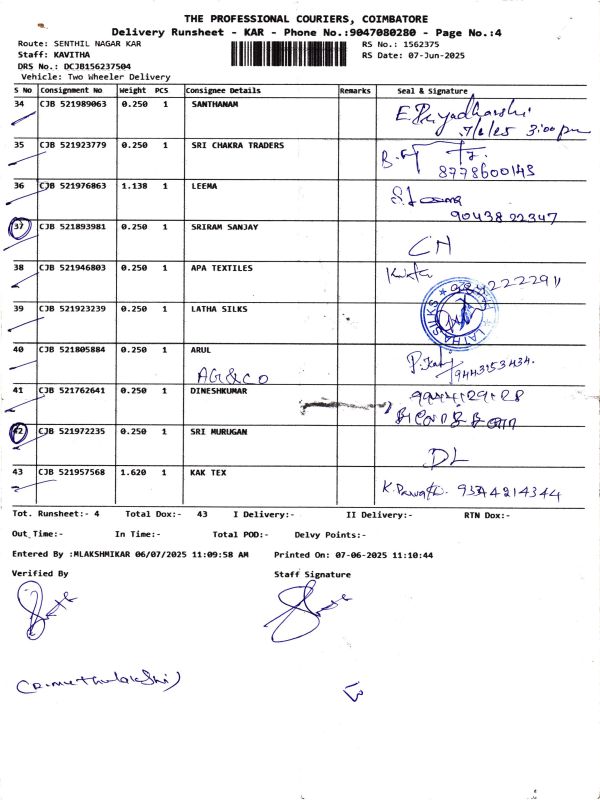 THE PROFESSIONAL COURIERS, COIMBATORE
Delivery Runsheet - KAR - Phone No.:9047080280 - Page No.:4
Route: SENTHIL NAGAR KAR RS No.: 1562375
Staff: KAVITHA RS Date: 07-Jun-2025
DRS No.: DCJB156237504
Vehicle: Two Wheeler Delivery
S No Consignment No Weight PCS Consignee Details Remarks Seal & Signature
34 CJB 521989063 0.250 1 SANTHANAM
7/6/25 3:00 pm
35 CJB 521923779 0.250 1 SRI CHAKRA TRADERS
8778600143
36 CJB 521976863 1.138 1 LEEMA
9043822347
37 CJB 521893981 0.250 1 SRIRAM SANJAY CH
38 CJB 521946803 0.250 1 APA TEXTILES
39 CJB 521923239 0.250 1 LATHA SILKS LATHA SILKS
40 CJB 521805884 0.250 1 ARUL
AG&CO 9443153434.
41 CJB 521762641 0.250 1 DINESHKUMAR
42 CJB 521972235 0.250 1 SRI MURUGAN DL
43 CJB 521957568 1.620 1 KAK TEX 9344214344
Tot. Runsheet:- 4 Total Dox:- 43 I Delivery:- II Delivery:- RTN Dox:-
Out Time:- In Time:- Total POD:- Delvy Points:-
Entered By :MLAKSHMIKAR 06/07/2025 11:09:58 AM Printed On: 07-06-2025 11:10:44
Verified By Staff Signature